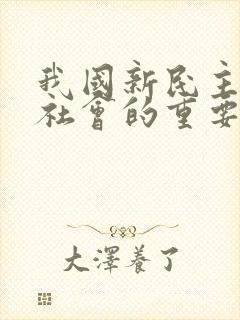 我國新民主
社會的重要
大澤養了